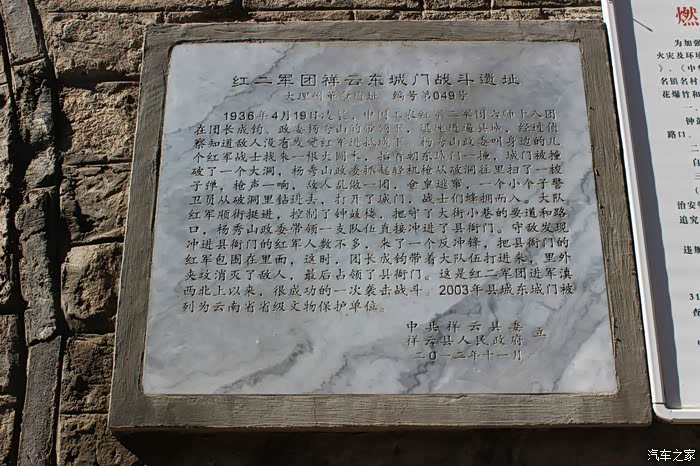 红二军团祥云东城门战斗遗址
大理州革命遗址 编号第049号
1936年4月19日凌晨,中国工农红军二军团六师十八团
在团长成钧、政委杨秀山的带领下,逼近县城,经过侦
察知道敌人没有发觉红军进抵城下。杨秀山政委叫身边的几
个红军战士找来一根大圆木,抬着朝东城门一撞,城门被撞
破了一个大洞,杨秀山政委抓起轻机枪从破洞往里扫了一梭
子弹,枪声一响,敌人乱做一团,仓皇逃窜,一个小个子警
卫员从破洞里钻进去,打开了城门,战士们蜂拥而入。大队
红军顺街挺进,控制了钟鼓楼,把守了大街小巷的要道和路
口,杨秀山政委带领一支队伍直接冲进了县衙门。守敌发现
冲进县衙门的红军人数不多,来了一个反冲锋,把县衙门的
红军包围在里面,这时,团长成钧带着大队伍打进来,里外
夹攻消灭了敌人,最后占领了县衙门。这是红二军团进军滇
西北上以来,很成功的一次袭击战斗。2003年县城东城门被
列为云南省省级文物保护单位。
中共祥云县委
祥云县人民政府 立
二〇一二年十一月
燃
为加强
火灾及环境
)、《中华
名镇名村
花爆竹和
钟鼓
路口。
二
自
三
违
治安
追究
违
31
查
汽车之家